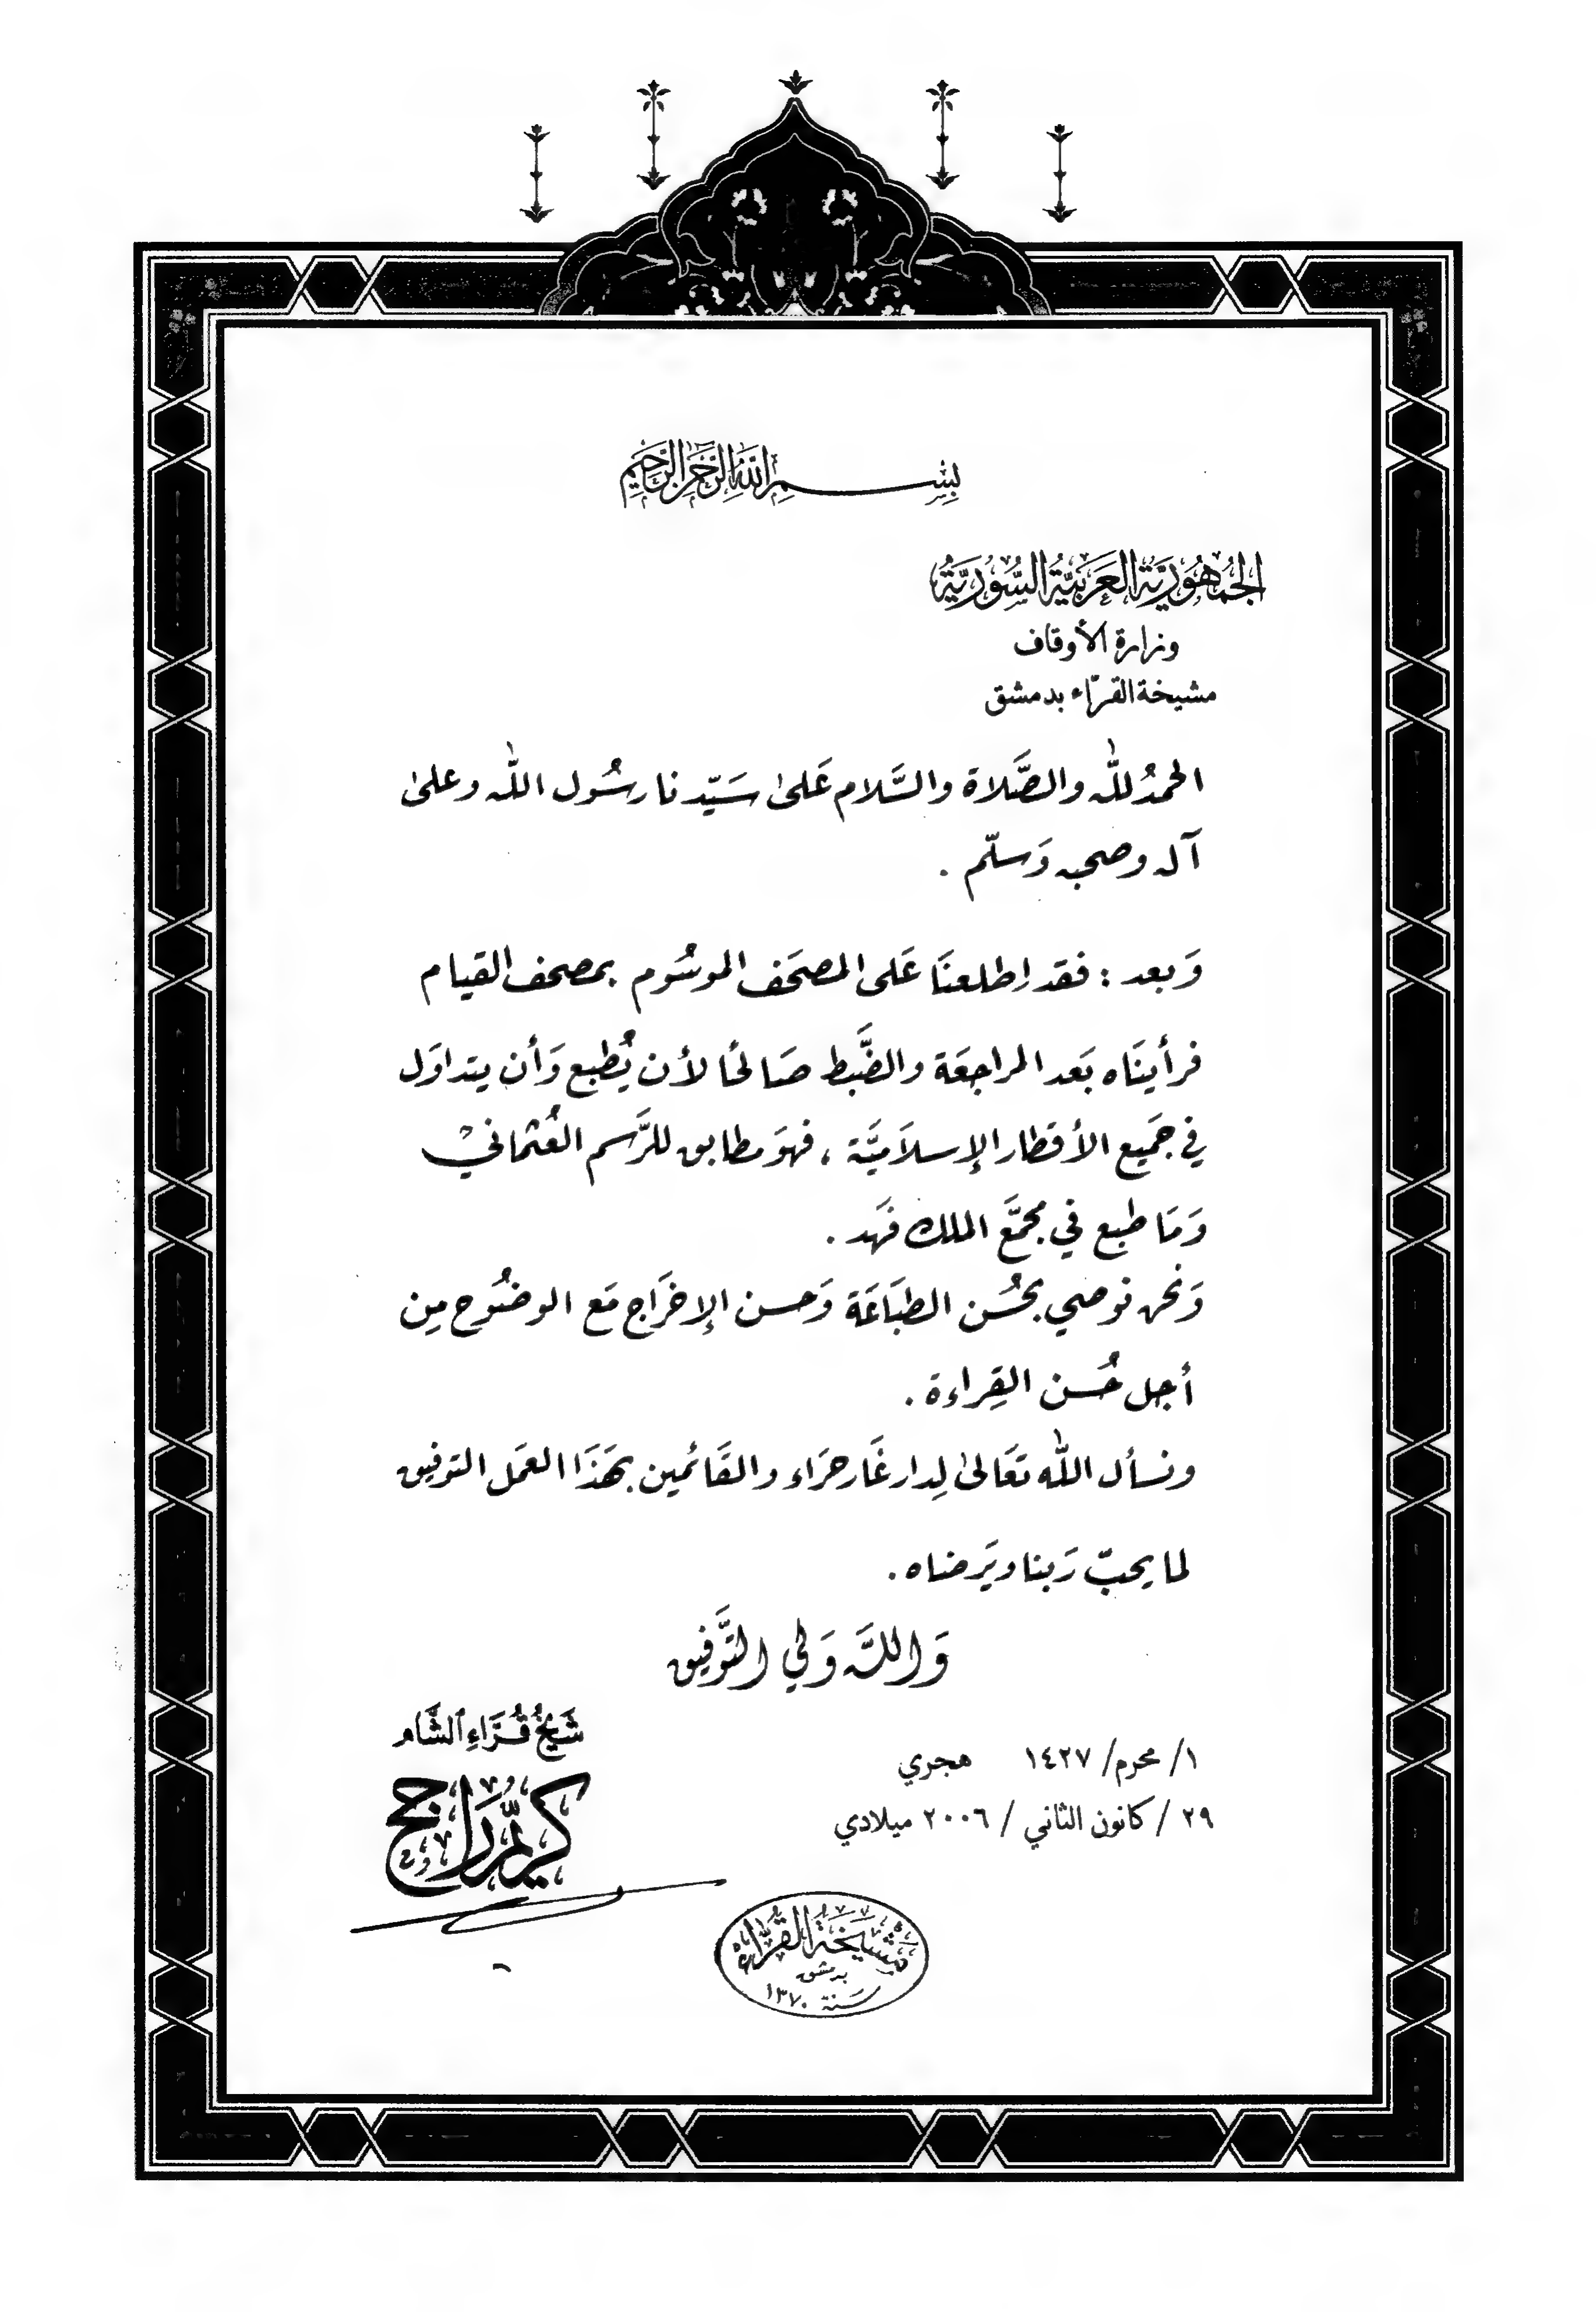 بِسْــمِ اللَّهِ الرَّحْمَٰنِ الرَّحِيمِ
الجُمهُوريَّة العَرَبيَّة السُّوريَّة
وزارة الأوقاف
مشيخة القرّاء بدمشق
الحمدُ للّٰه والصَّلاة والسَّلام عَلىٰ سَيّدنا رسُول اللّٰه وعلىٰ
آله وصحبه وَسلّم .
وَبعد : فقد اِطلعنَا عَلى المصحَف الموسُوم بمصحف القيام
فرأينَاه بَعد المراجعَة والضَّبط صَالحًا لأن يُطبع وَأن يتداوَل
في جَميع الأقطار الإسلاَميَّة ، فهوَ مطابق للرَّسم العُثماني
وَمَا طبع في مجمَّع الملك فَهد .
وَنحن نوصي بحُسَن الطبَاعَة وَحسن الإخرَاج مَع الوضُوح مِن
أجل حُسن القِراءة .
ونسأل اللّٰه تعَالىٰ لِدار غَار حرَاء والقَائمين بهَذَا العمَل التوفيق
لما يحبّ رَبنا ويَرضاه .
وَاللَّه وَلي التَّوفيق
شَيْخُ قُرَّاءِ الشَّام
كريّم رَاجح
١/ محرم/ ١٤٢٧ هجري
٢٩ / كانون الثاني / ٢٠٠٦ ميلادي
مَشيَخَةُ القُرَّاء
بدمشق
سَنة ١٣٧٠